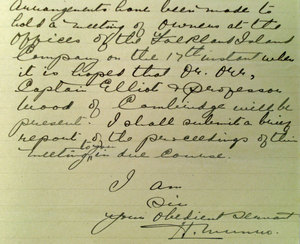 Arrangements have been made to
hold a meeting of owners at the
offices of the Falkland Island
Company on the 17th instant when
it is hoped that Dr. Orr,
Captain Elliot & Professor
Wood of Cambridge will be
present. I shall submit a brief
report to you of the proceedings of this
meeting in due course.
I am
Sir
your obedient servant
H. Munro.